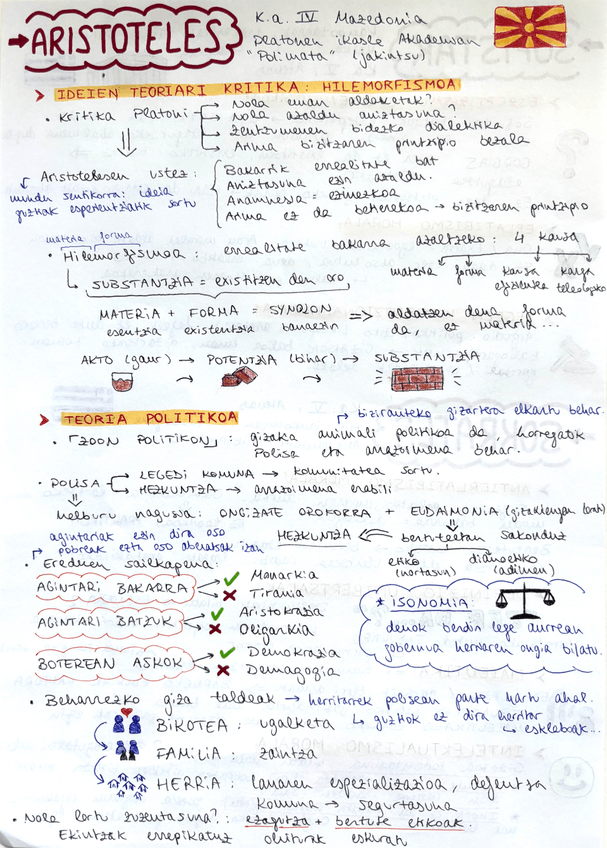 ARISTOTELES
K.a. IV Mazedonia
Platonen ikasle Akademian
"Polimata" (jakintsu)
IDEIEN TEORIARI KRITIKA: HILEMORFISMOA
• Kritika Platoni
Nola eman aldaketak?
Nola azaldu aniztasuna?
Zentzumenen bidezko dialektika
Arima bizitzaren printzipio bezala
Aristotelesen ustez:
mundu sentikorra: ideia
guztiak esperientziatik sortu
Bakarrik errealitate bat
Aniztasuna ezin azaldu.
Anamnesia = ezinezkoa
Arima ez da beherekoa → bizitzaren printzipio
materia forma
• Hilemorfismoa: errealitate bakarra azaltzeko: 4 kausa
materia forma kausa efizientea kausa teleologiko
SUBSTANTZIA = existitzen den oro
MATERIA + FORMA = SYNOLON => aldatzen dena forma
esentzia existentzia banaezin da, ez materia...
AKTO (gaur) → POTENTZIA (bihar) → SUBSTANTZIA
TEORIA POLITIKOA
biziranteko gizartera elkartu behar.
• "ZOON POLITIKON": gizakia animali politikoa da, horregatik
Polisa eta arrazoimena behar.
• POLISA
LEGEDI KOMUNA → komunitatea sortu.
HEZKUNTZA → arrazoimena erabili
helburu nagusia: ONGIZATE OROKORRA + EUDAIMONIA (gitaklengan (barik)
agintariak ezin dira oso
pobreak ezta oso aberatsak izan
HEZKUNTZA
bertuteetan sakonduz
etiko (nortasun)
dianoetiko (adimen)
• Ereduen sailkapena:
AGINTARI BAKARRA
Monarkia
Tirania
AGINTARI BATZUK
Aristokrazia
Oligarkia
BOTEREAN ASKOK
Demokrazia
Demagogia
* ISONOMIA:
denok berdin lege aurrean
gobernua herriaren ongia bilatu.
• Beharrezko giza taldeak → herritarrek polisean parte hartu ahal.
guztiok ez dira herritar
eskleboak...
BIKOTEA: ugalketa
FAMILIA: zaintza
HERRIA: lanaren espezializazioa, defentsa
komuna → segurtasuna
• Nola lortu zuzentasuna?: ezagutza + bertute etikoak.
Ekintzak errepikatuz ohiturak eskuratu